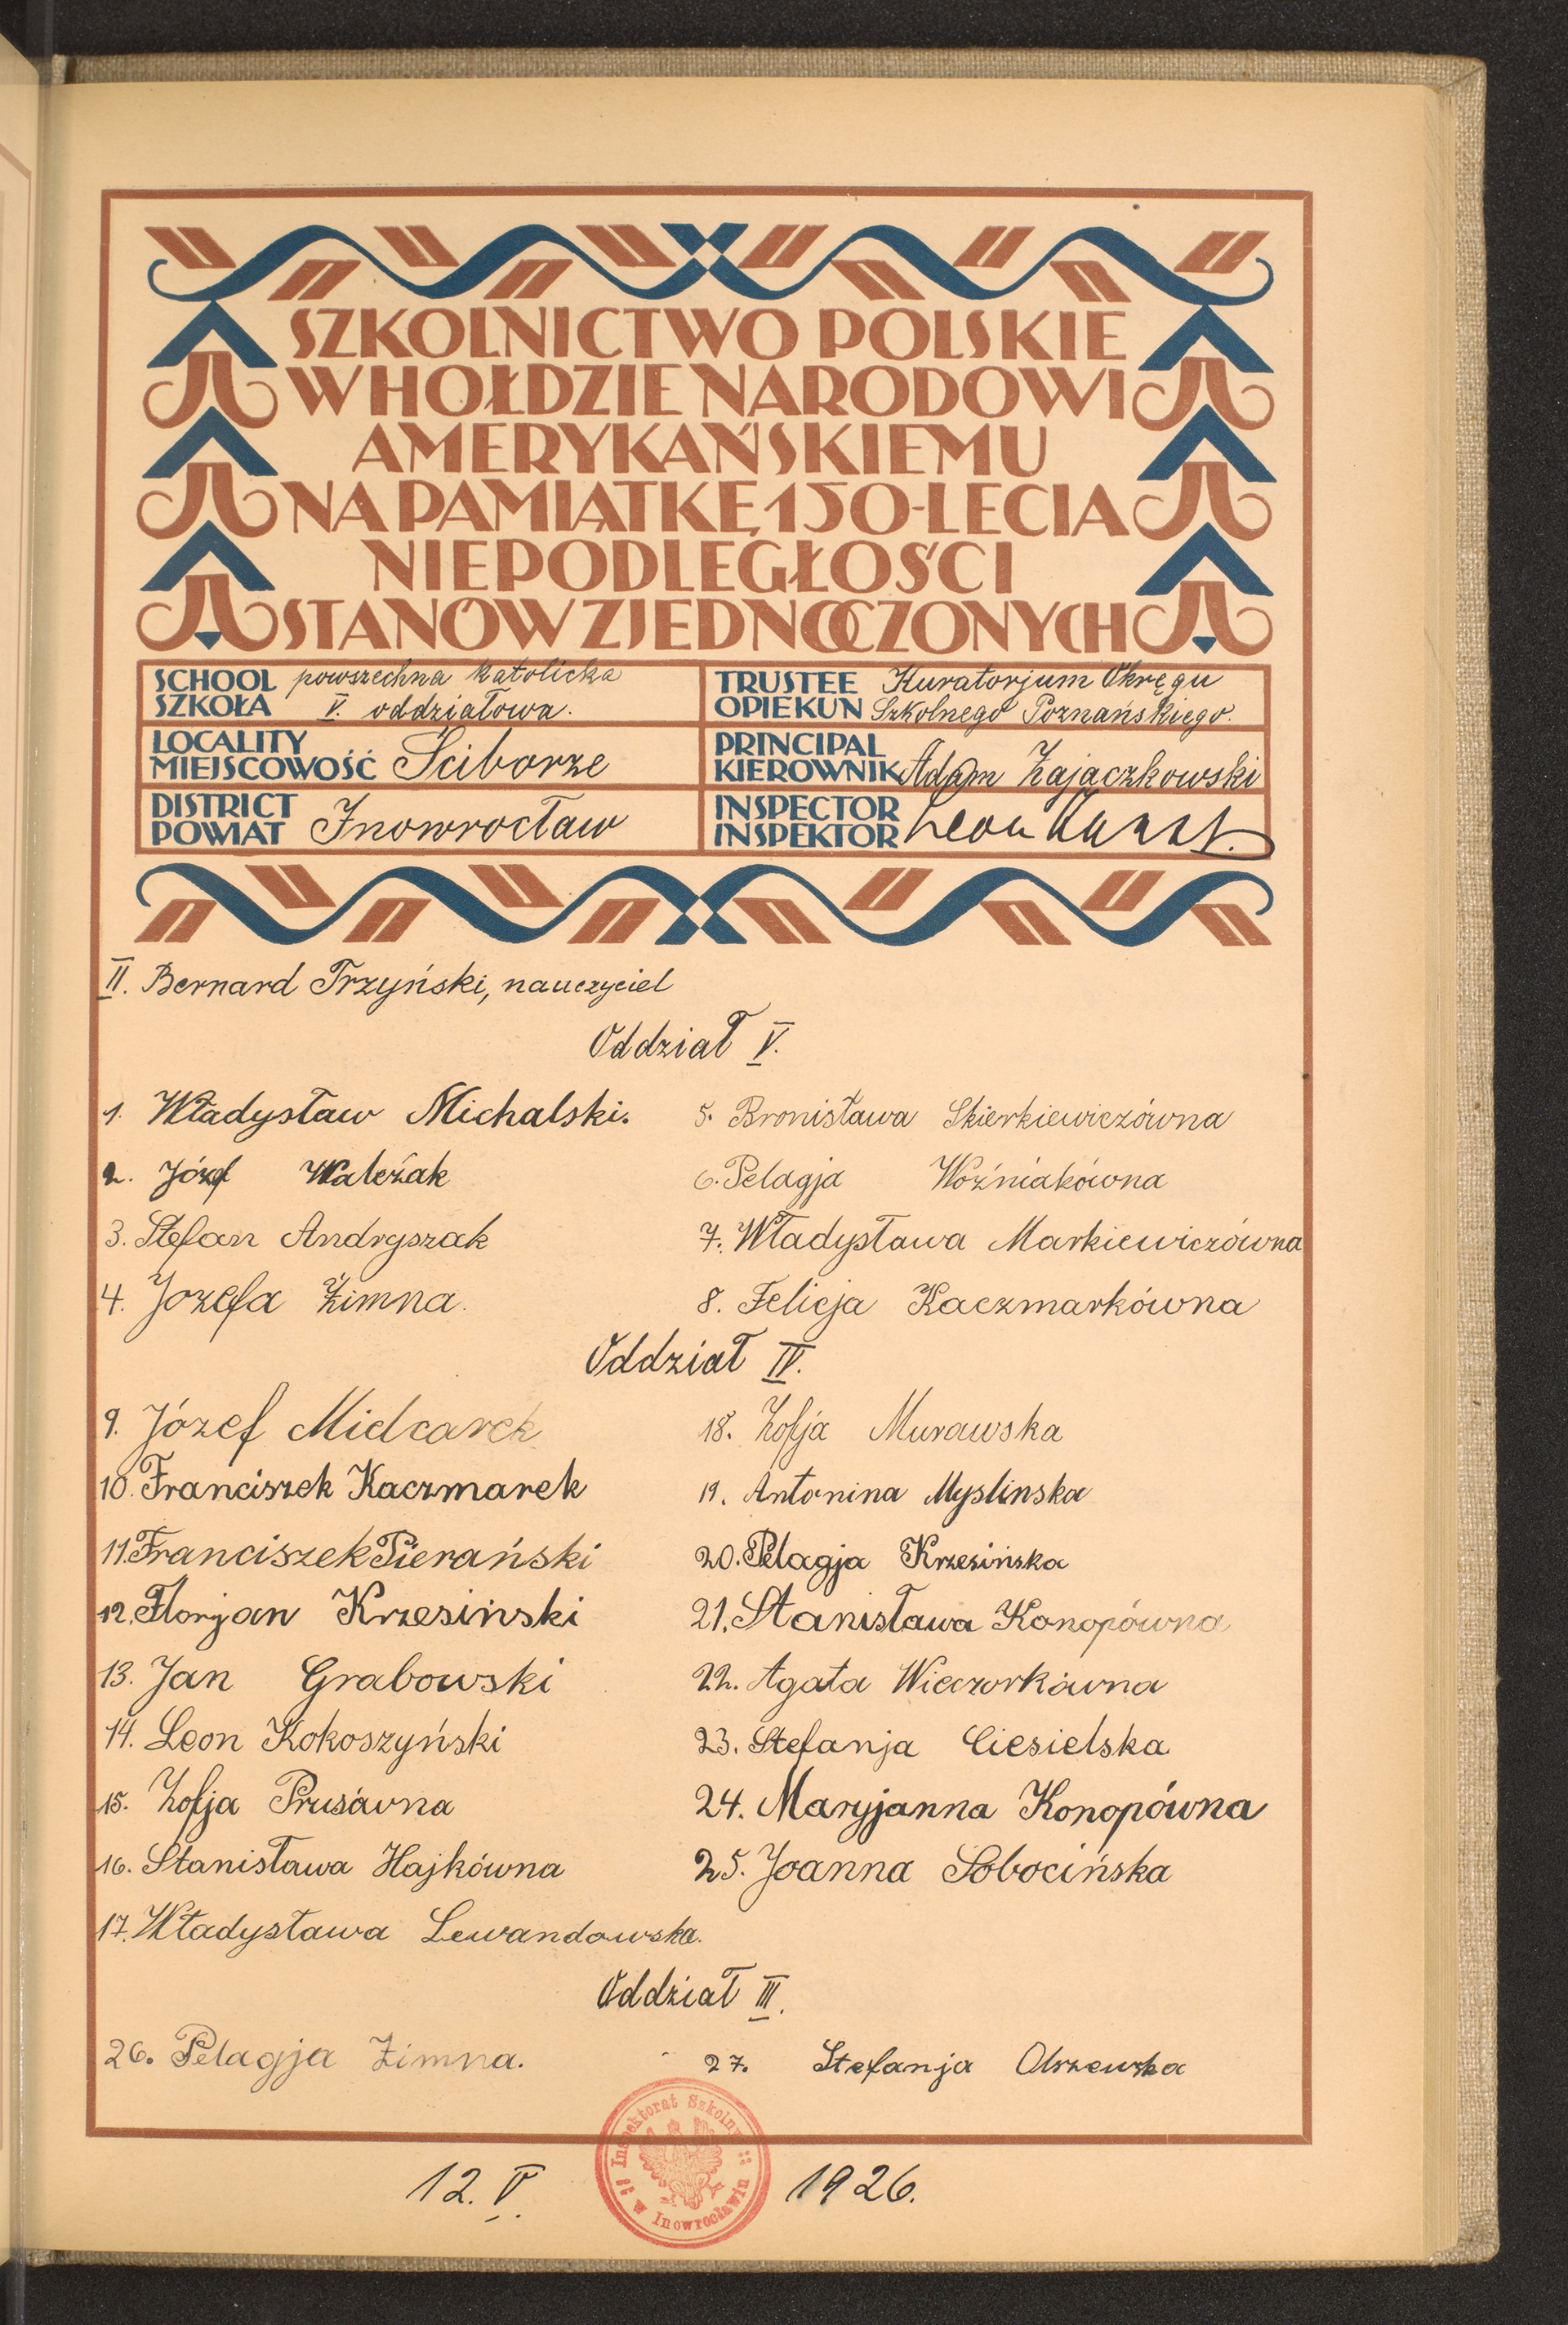 SZKOLNICTWO POLSKIE
W HOŁDZIE NARODOWI
AMERYKAŃSKIEMU
NA PAMIĄTKĘ 150-LECIA
NIEPODLEGŁOŚCI
STANÓW ZJEDNOCZONYCH
SCHOOL
SZKOŁA
powszechna katolicka
V. oddziałowa.
TRUSTEE
OPIEKUN
Kuratorjum Okręgu
Szkolnego Poznańskiego.
LOCALITY
MIEJSCOWOŚĆ
Ściborze
PRINCIPAL
KIEROWNIK
Adam Zajączkowski
DISTRICT
POWIAT
Inowrocław
INSPECTOR
INSPEKTOR
Leon
II. Bernard Trzyński, nauczyciel
Oddział V.
1. Władysław Michalski.
2. Józef Walczak
3. Stefan Andryszak
4. Jozefa Zimna.
5. Bronisława Skierkiewiczówna
6. Pelagja Woźniakówna
7. Władysława Markiewiczówna
8. Felicja Kaczmarkówna
Oddział IV.
9. Józef Midcarek
10. Franciszek Kaczmarek
11. Franciszek Pierański
12. Florjan Krzesiński
13. Jan Grabowski
14. Leon Kokoszyński
15. Zofja Prusówna
16. Stanisława Hajkówna
17. Władysława Lewandowska.
18. Zofja Murawska
19. Antonina Myslinska
20. Pelagja Krzesińska
21. Stanisława Konopówna
22. Agata Wieczorkówna
23. Stefanja Ciesielska
24. Maryjanna Konopówna
25. Joanna Sobocińska
Oddział III.
26. Pelagja Zimna.
27. Stefanja Olszewska
12. V. 1926.
Inspektorat Szkolny
w Inowrocławiu